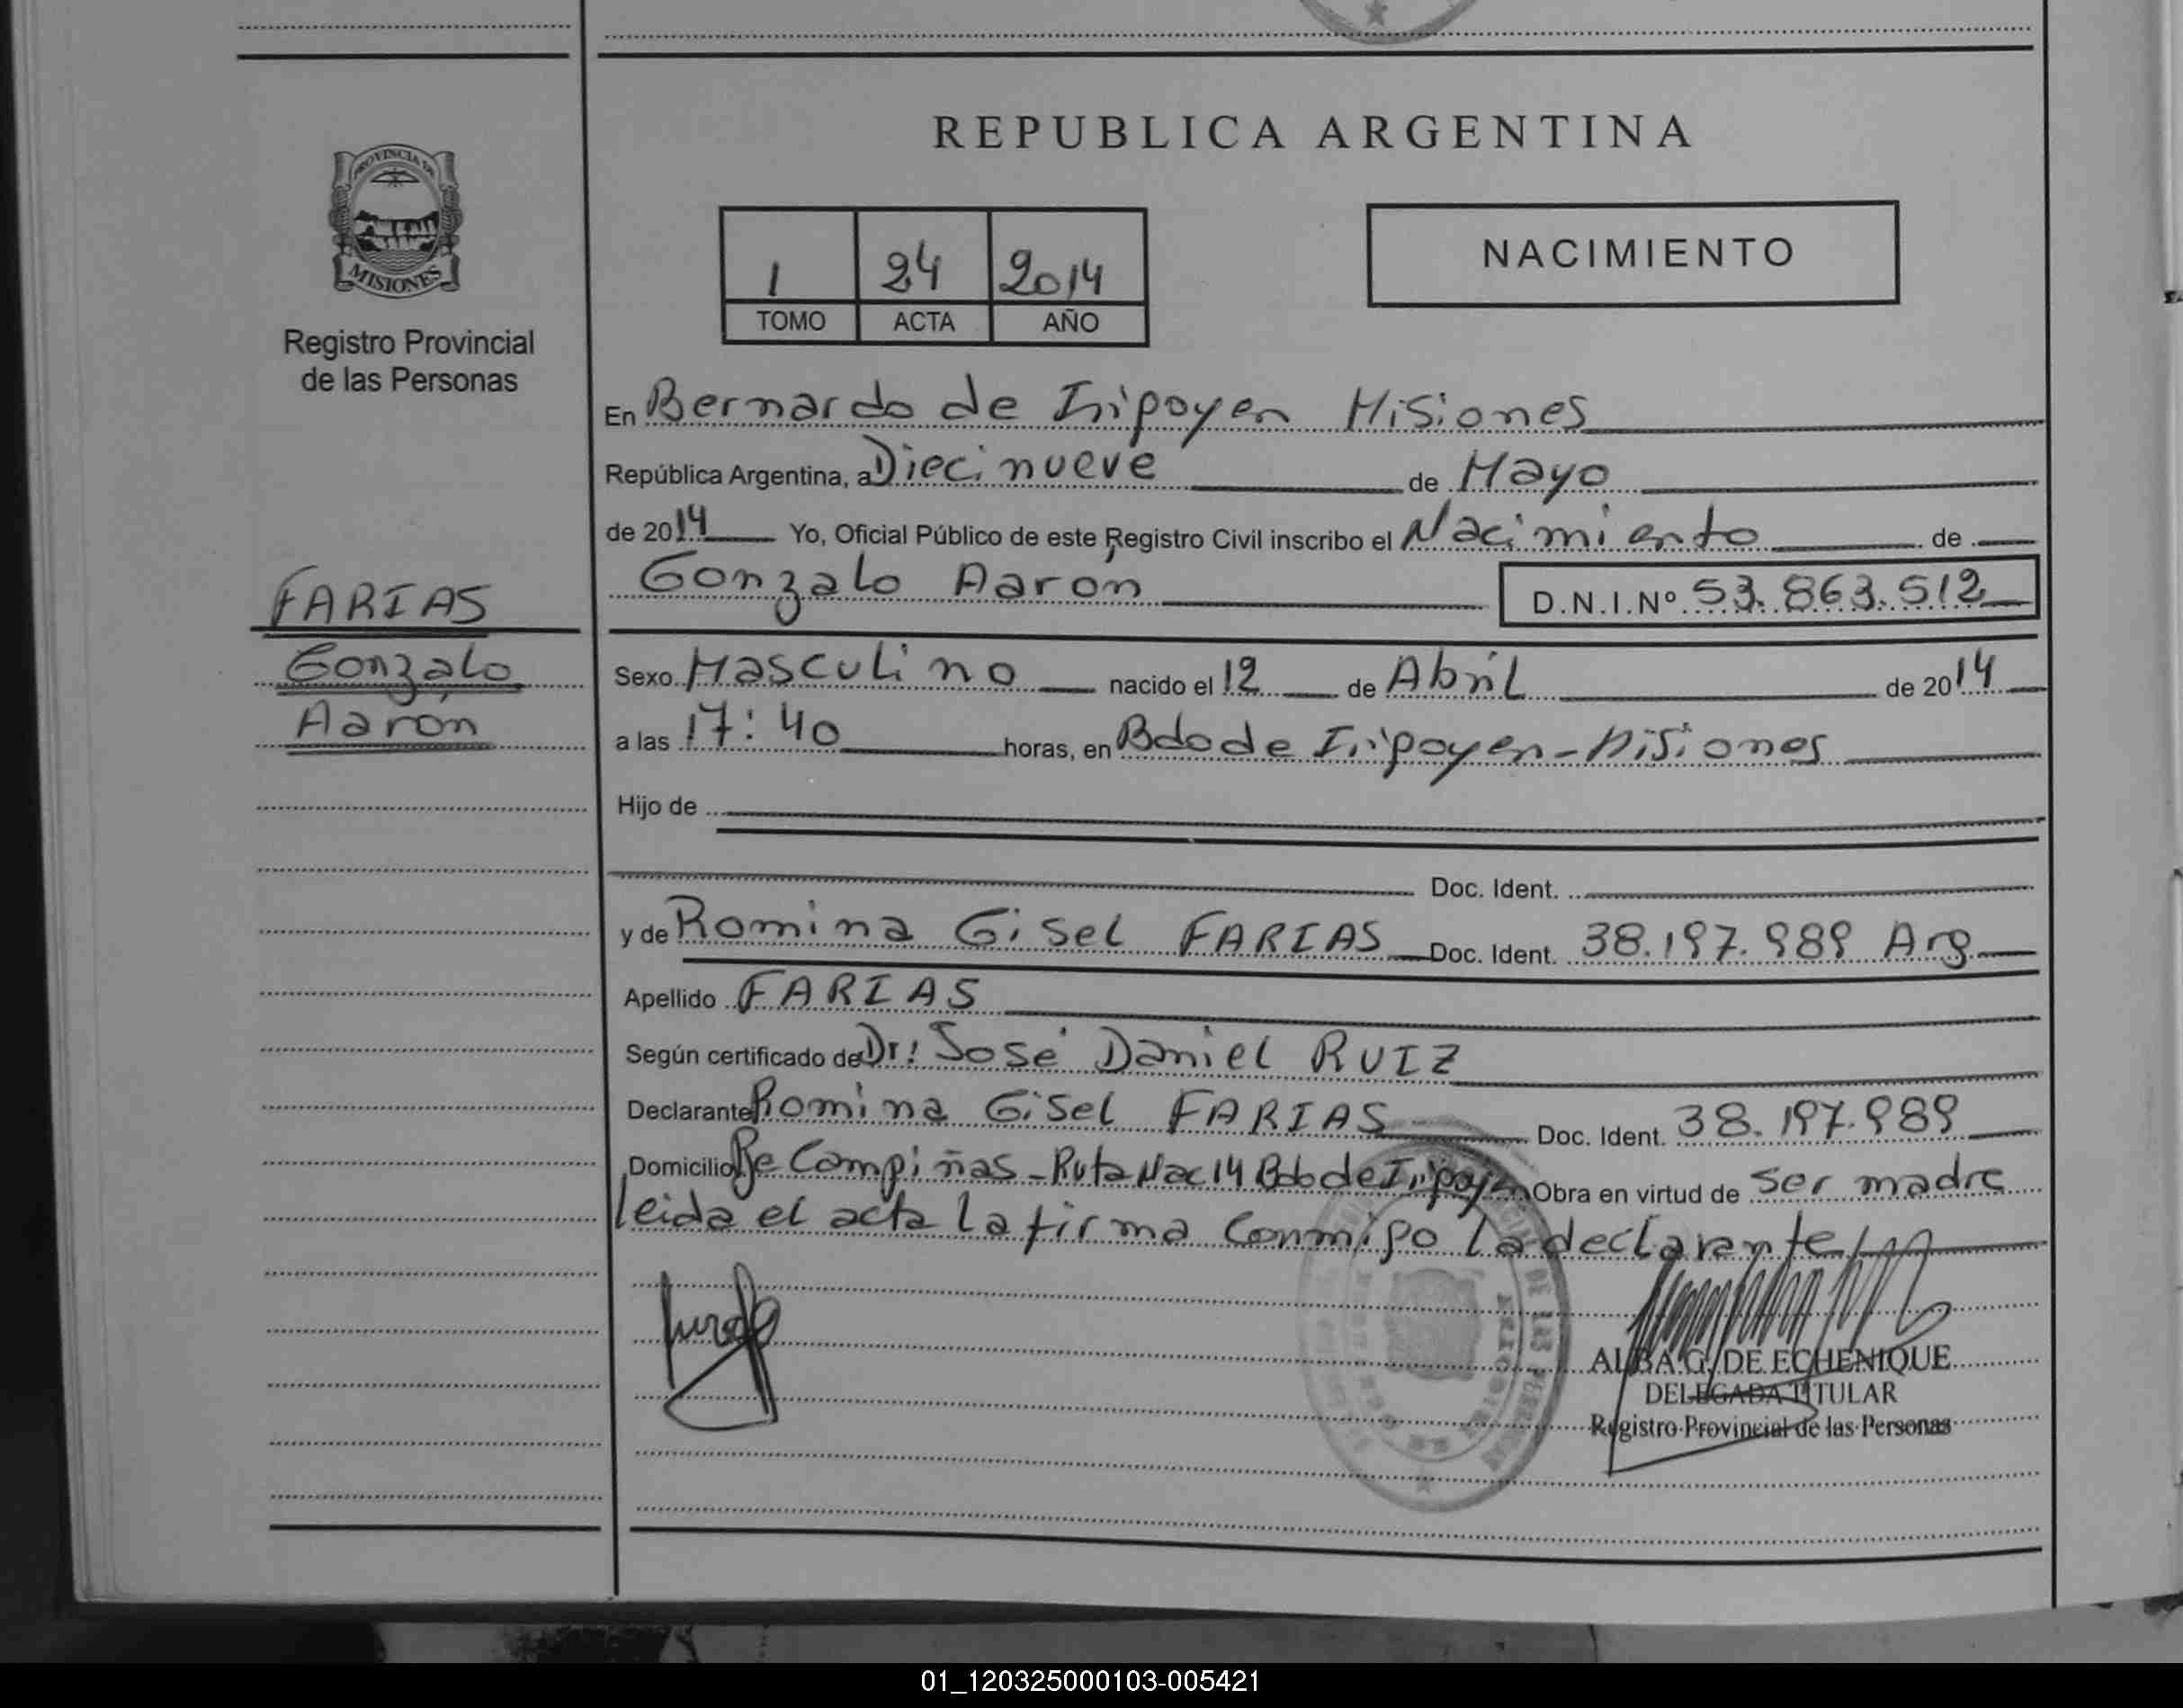 REPUBLICA ARGENTINA
PROVINCIA DE
MISIONES
Registro Provincial
de las Personas
1 24 2014
TOMO ACTA AÑO
NACIMIENTO
En Bernardo de Iripoyen Misiones
República Argentina, a Diecinueve de Mayo
de 2014 Yo, Oficial Público de este Registro Civil inscribo el Nacimiento de
Gonzalo Aarón D.N.I.Nº 53.863.512
FARIAS
Gonzalo
Aarón
Sexo Masculino nacido el 12 de Abril de 2014
a las 17:40 horas, en Bdo de Iripoyen - Misiones
Hijo de
Doc. Ident.
y de Romina Gisel FARIAS Doc. Ident. 38.197.989 Arg
Apellido FARIAS
Según certificado de Dr: José Daniel RUIZ
Declarante Romina Gisel FARIAS Doc. Ident. 38.197.989
Domicilio Pje Campiñas - Ruta Nac 14 Bdo de Iripoyen Obra en virtud de ser madre
leida el acta la firma conmipo la declarante
ALBA G. DE ECHENIQUE
DELEGADA TITULAR
Registro Provincial de las Personas
01_120325000103-005421